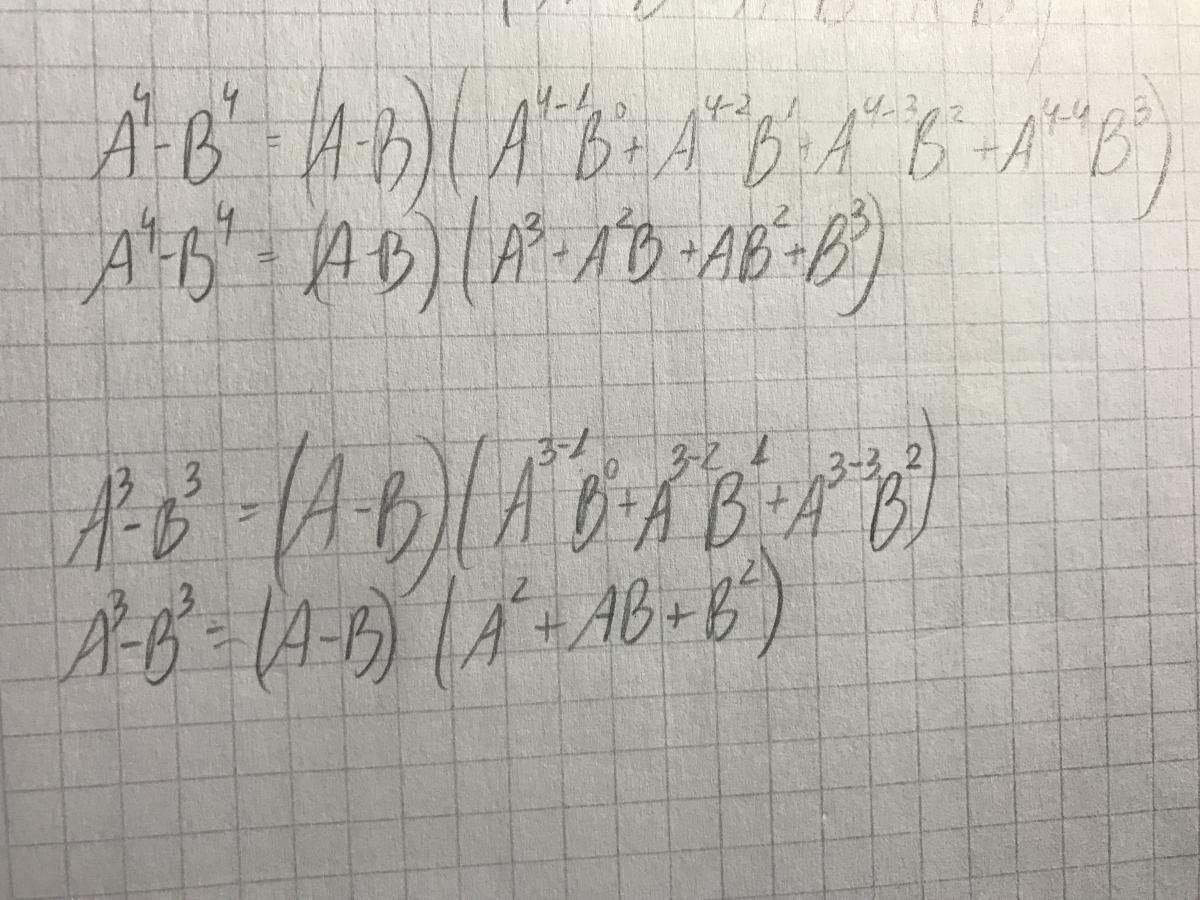 A⁴-B⁴ = (A-B)(A⁴⁻¹B⁰+A⁴⁻²B¹+A⁴⁻³B²+A⁴⁻⁴B³)
A⁴-B⁴ = (A-B)(A³+A²B+AB²+B³)
A³-B³ = (A-B)(A³⁻¹B⁰+A³⁻²B¹+A³⁻³B²)
A³-B³ = (A-B)(A²+AB+B²)